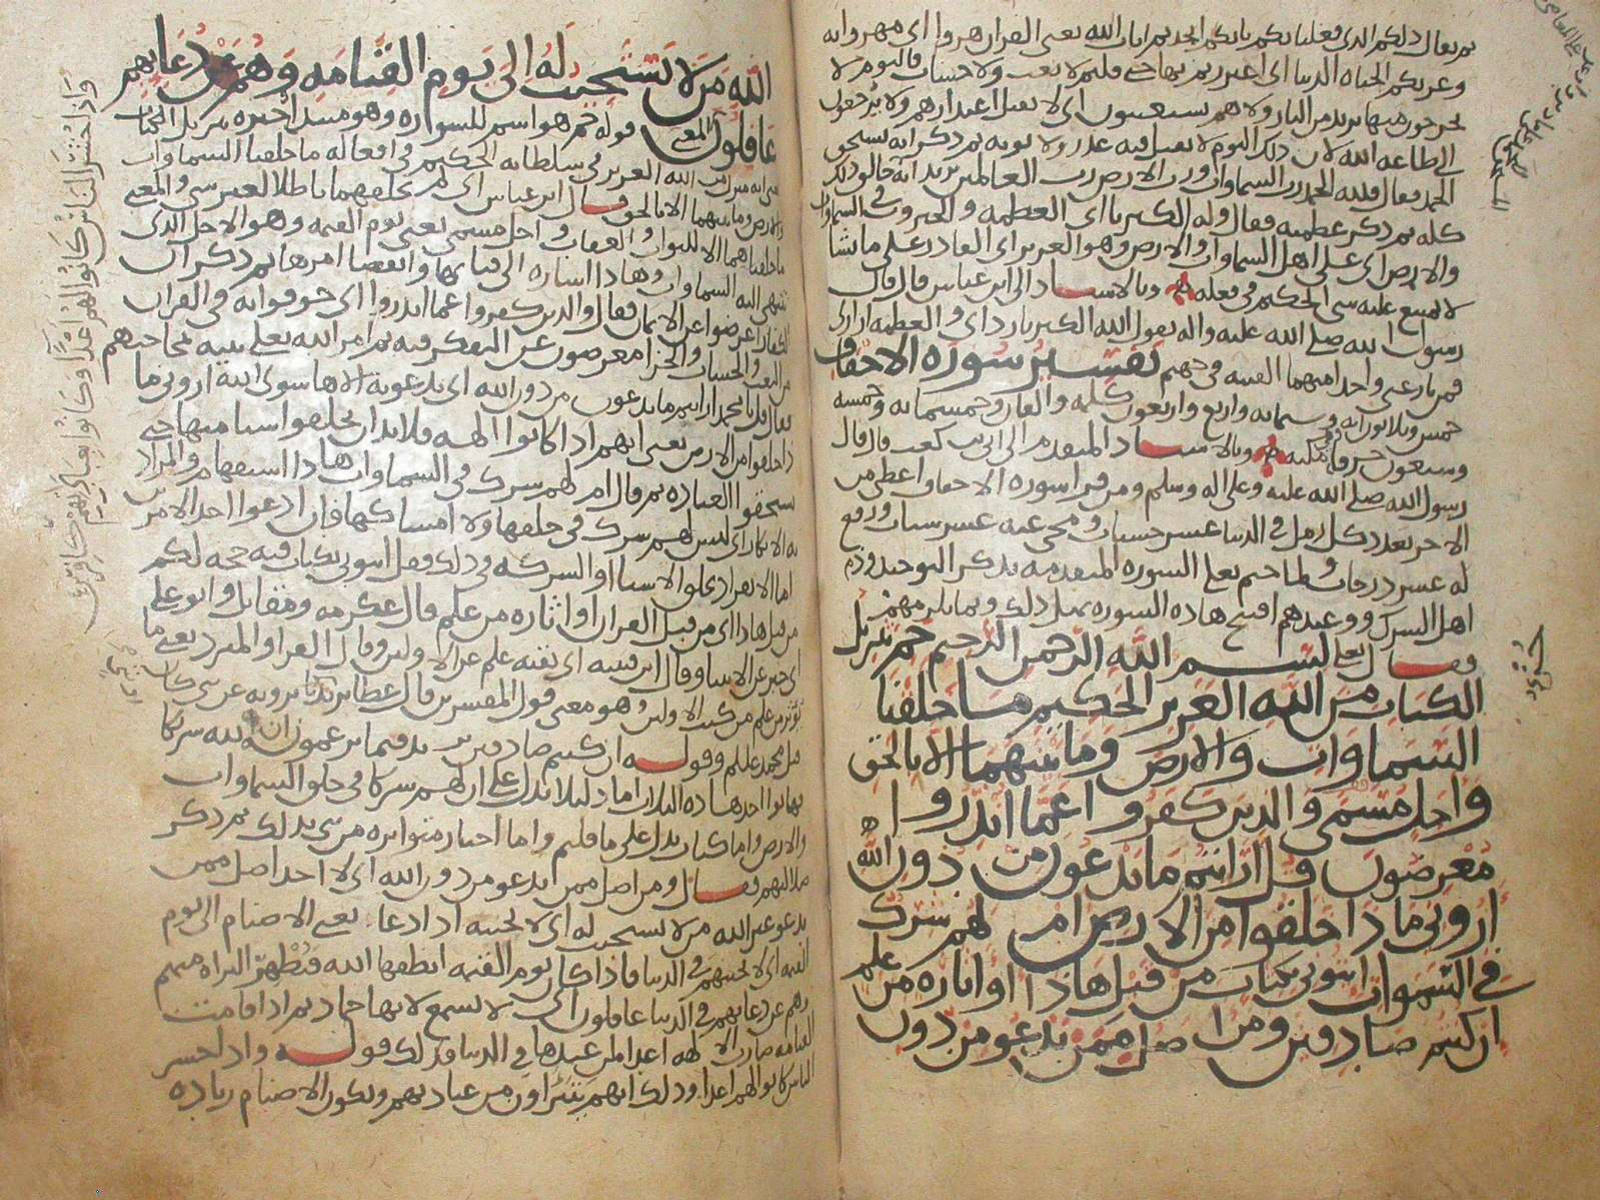 ثم يقال ذلكم الذي فعلنا بكم بانكم اتخذتم ايات الله يعني القران هزوا اي مهزوا به
وغرتكم الحياة الدنيا اي
يخرجون منها يريد من النار ولا هم يستعتبون اي لا يقبل اعتذارهم ولا
الى طاعة الله لان ذلك اليوم لا يقبل فيه عذر ولا توبة ثم ذكر انه يستحق
الحمد فقال فلله الحمد رب السماوات ورب الارض رب العالمين يريد انه خالق ذلك
كله ثم ذكر عظمته فقال وله الكبريا اي العظمة والجبروت في السماوات
والارض اي على اهل السماوات والارض وهو العزيز اي القادر على ما يشا
لا يمتنع عليه شي الحكيم في فعله وبالاسناد الى ابن عباس قال قال
رسول الله صلى الله عليه واله يقول الله الكبريا ردائي والعظمة ازاري
فمن نازعني واحدا منهما القيته في جهنم تفسير سورة الاحقاف
خمس وثلاثون اية وستمائة واربع واربعون كلمة والفان وخمسمائة وخمسة
وسبعون حرفا مكية وبالاسناد المتقدم الى ابي بن كعب قال قال
رسول الله صلى الله عليه وعلى اله وسلم ومن قرا سورة الاحقاف اعطي من
الاجر بعدد كل رمل في الدنيا عشر حسنات ومحي عنه عشر سيات ورفع
له عشر درجات ولما ختم تعالى السورة المتقدمة بذكر التوحيد وذم
اهل الشرك ووعيدهم افتتح هاذه السورة بمثل ذلك
فقال تعالى بسم الله الرحمن الرحيم حم تنزيل
الكتاب من الله العزيز الحكيم ما خلقنا
السماوات والارض وما بينهما الا بالحق
واجل مسمى والذين كفروا عما انذروا
معرضون قل ارايتم ما تدعون من دون الله
اروني ماذا خلقوا من الارض ام لهم شرك
في السموات ايتوني بكتاب من قبل هاذا او اثارة من علم
ان كنتم صادقين ومن اضل ممن يدعو من دون
الله من لا يستجيب له الى يوم القيامة وهم عن دعايهم
غافلون المعنى قوله حم هو اسم للسورة وهو مبتدا خبره تنزيل الكتاب
الله العزيز في سلطانه الحكيم في افعاله ما خلقنا السماوات
والارض وما بينهما الا بالحق قال ابن عباس اي لم نخلقهما باطلا لغير شي والمعنى
ما خلقناهما الا للثواب والعقاب واجل مسمى يعني يوم القيمة وهو الاجل الذي
تنتهي اليه السماوات وهاذا اشارة الى فنائها وانقضا امرها ثم ذكر ان
الكفار اعرضوا عن الايمان فقال والذين كفروا عما انذروا اي خوفوا به في القران
من البعث والحساب والجزا معرضون عن التفكر فيه ثم امر الله تعالى نبيه بمحاجتهم
فقال قل يا محمد ارايتم ما تدعون من دون الله اي تدعونه الاها سوى الله اروني ما
ذا خلقوا من الارض يعني انهم اذا كانوا الهة فلا بد ان يخلقوا اشيا منها حتى
يستحقوا العبادة ثم قال ام لهم شرك في السماوات هاذا استفهام والمراد
به الانكار اي ليس لهم شرك في خلقها ولا امساكها فان ادعوا احد الامرين
اما الانفراد بخلق الاشيا او الشركة في ذلك فقل ايتوني بكتاب فيه حجة لكم
من قبل هاذا اي من قبل القران او اثارة من علم قال عكرمة ومقاتل
اي خبر عن الانبيا وقال ابن قتيبة اي بقية علم عن الاولين وقال الفرا والمبرد يعني ما
يؤثر من علم من كتب الاولين وهو معنى قول المفسرين قال عطا يريد
قبل محمد عليلم وقوله ان كنتم صادقين يريد فيما تزعمون ان لله شركا
هاتوا احد هاذه الثلاث اما دليلا يدل على ان لهم شركا في خلق السماوات
والارض واما كتاب يدل على ما قلتم واما اخبار متواترة من شي بذلك ثم ذكر
ضلالتهم فقال ومن اضل ممن يدعو من دون الله اي لا احد اضل ممن
يدعو غير الله من لا يستجيب له اي لا يجيبه اذا دعا يعني الاصنام الى يوم
القيمة اي لا يجيبهم في الدنيا فاذا كان يوم القيمة انطقها الله فتظهر البراة منهم
وهم عن دعايهم في الدنيا غافلون اي لا يسمع لانها جماد ثم اذا قامت
القيامة صارت الالهة اعدا لمن عبدها في الدنيا وذلك قوله واذا حشر
الناس كانوا لهم اعدا وذلك انهم يتبراون من عبادتهم وتكون الاصنام زيادة
واذا حشر الناس كانوا لهم اعداء وكانوا بعبادتهم كافرين